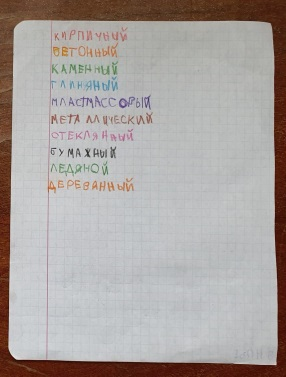 КИРПИЧНЫЙ
БЕТОННЫЙ
КАМЕННЫЙ
ГЛИНЯНЫЙ
ПЛАСТМАССОВЫЙ
МЕТАЛЛИЧЕСКИЙ
СТЕКЛЯННЫЙ
БУМАЖНЫЙ
ЛЕДЯНОЙ
ДЕРЕВАННЫЙ